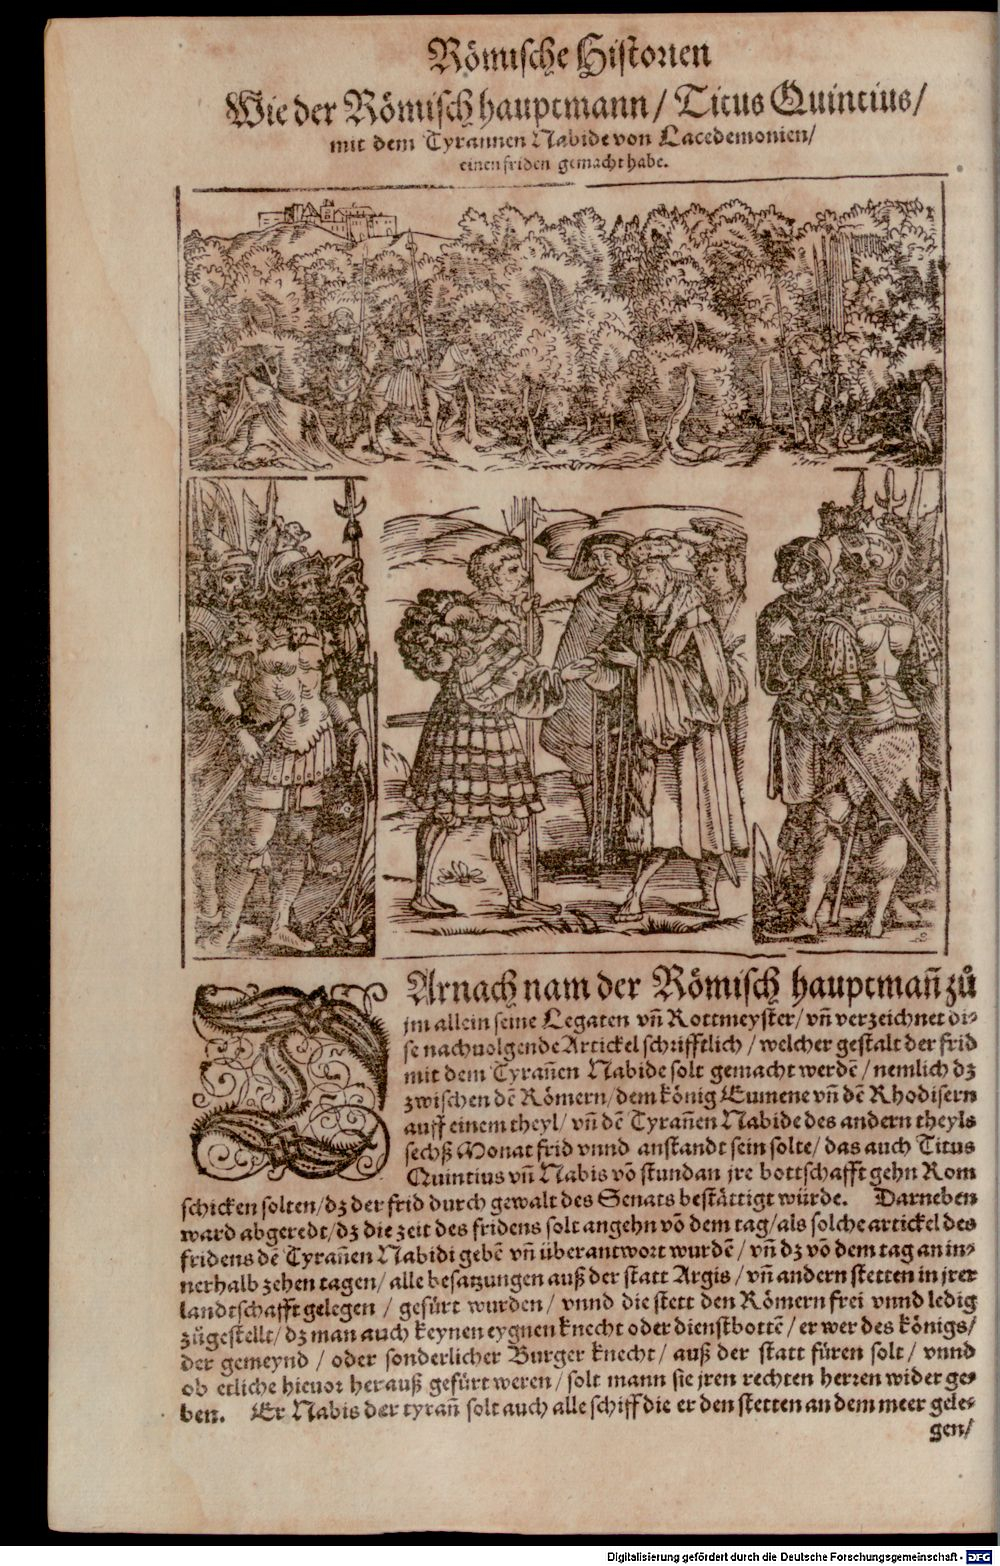 Römische Historien
Wie der Römisch hauptmann / Titus Quintius /
mit dem Tyrannen Nabide von Lacedemonien /
einen friden gemacht habe.
DArnach nam der Römisch hauptmañ zů
jm allein seine Legaten vñ Rottmeyster / vñ verzeichnet di⸗
se nachuolgende Artickel schrifftlich / welcher gestalt der frid
mit dem Tyrañen Nabide solt gemacht werdē / nemlich dz
zwischen dē Römern / dem könig Eumene vñ dē Rhodisern
auff einem theyl / vñ dē Tyrañen Nabide des andern theyls
sechß Monat frid vnnd anstandt sein solte / das auch Titus
Quintius vñ Nabis vō stundan jre bottschafft gehn Rom
schicken solten / dz der frid durch gewalt des Senats bestättigt würde. Darneben
ward abgeredt / dz die zeit des fridens solt angehn vō dem tag / als solche artickel des
fridens dē Tyrañen Nabidi gebē vñ überantwort wurdē / vñ dz vō dem tag an in⸗
nerhalb zehen tagen / alle besatzungen auß der statt Argis / vñ andern stetten in jrer
landtschafft gelegen / gefürt wurden / vnnd die stett den Römern frei vnnd ledig
zůgestellt / dz man auch keynen eygnen knecht oder dienstbottē / er wer des königs /
der gemeynd / oder sonderlicher Burger knecht / auß der statt füren solt / vnnd
ob etliche hieuor herauß gefürt weren / solt mann sie jren rechten herren wider ge⸗
ben. Er Nabis der tyrañ solt auch alle schiff die er den stetten an dem meer gele⸗
gen /
Digitalisierung gefördert durch die Deutsche Forschungsgemeinschaft - DFG